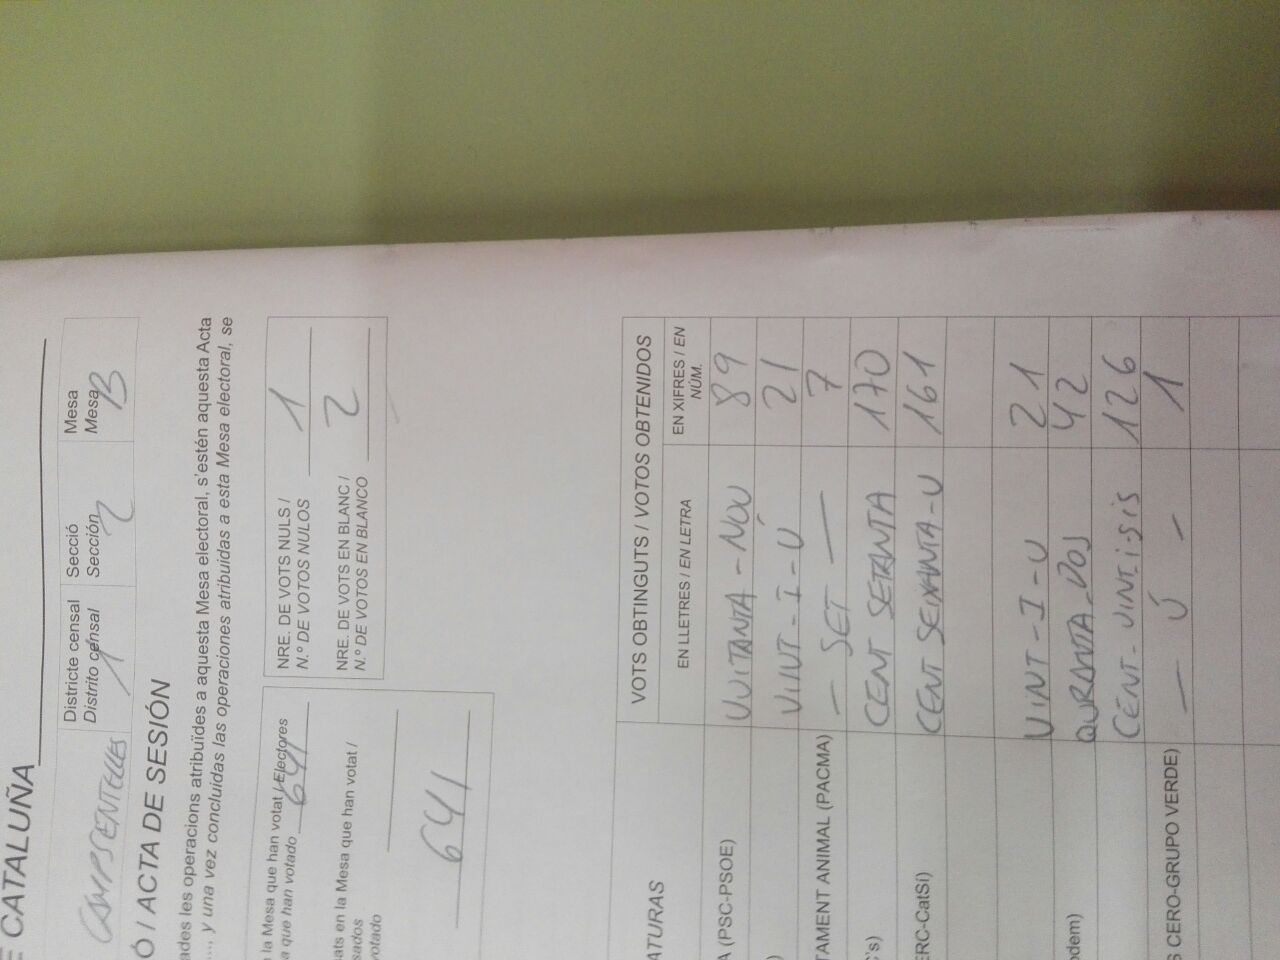 E CATALUÑA
CAMPSENTELLES
Districte censal
Distrito censal
1
Secció
Sección
2
Mesa
Mesa
B
Ó / ACTA DE SESIÓN
ades les operacions atribuïdes a aquesta Mesa electoral, s'estén aquesta Acta
... y una vez concluidas las operaciones atribuidas a esta Mesa electoral, se
la Mesa que han votat / Electores
a que han votado 641
NRE. DE VOTS NULS /
N.º DE VOTOS NULOS 1
ats en la Mesa que han votat /
sados
votado
NRE. DE VOTS EN BLANC /
N.º DE VOTOS EN BLANCO 2
641
ATURAS
VOTS OBTINGUTS / VOTOS OBTENIDOS
EN LLETRES / EN LETRA
EN XIFRES / EN
NÚM.
A (PSC-PSOE) VUITANTA-NOU 89
) VINT-I-Ú 21
TAMENT ANIMAL (PACMA) - SET - 7
C's) CENT SETANTA 170
ERC-CatSí) CENT SEIXANTA-U 161
VINT-I-U 21
odem) QURANTA-DOS 42
CENT-VINT-i-SiS 126
S CERO-GRUPO VERDE) - Ú - 1